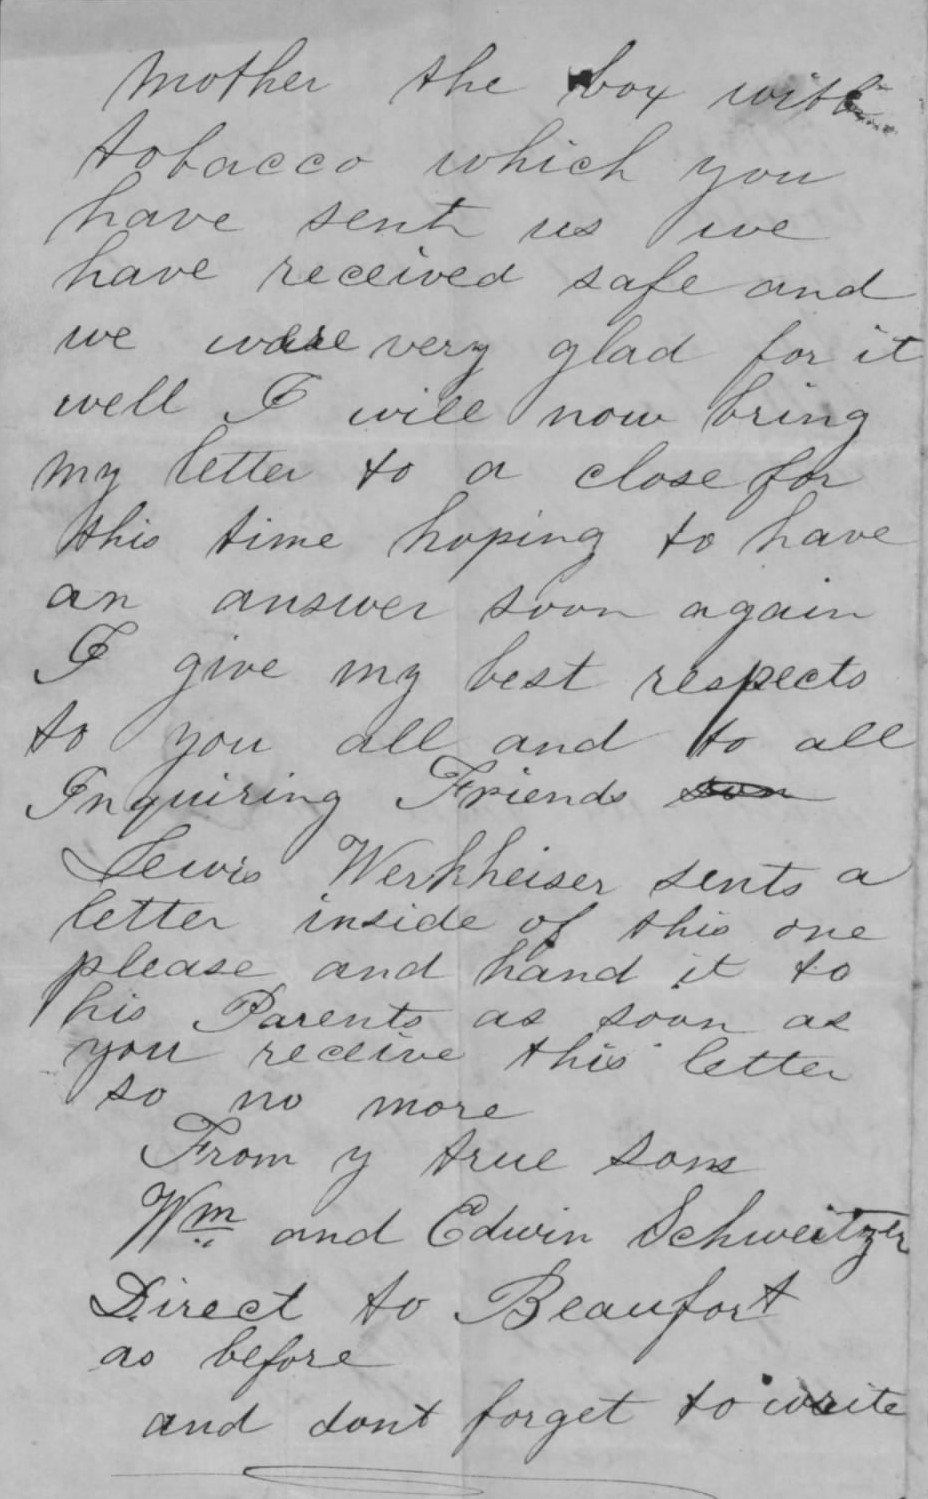 mother the box with
tobacco which you
have sent us we
have received safe and
we were very glad for it
well I will now bring
my letter to a close for
this time hoping to have
an answer soon again
I give my best respects
to you all and to all
Inquiring Friends son
Lewis Werkheiser sents a
letter inside of this one
please and hand it to
his Parents as soon as
you receive this letter
so no more
From y true sons
Wm and Edwin Schweitzer
Direct to Beaufort
as before
and dont forget to write